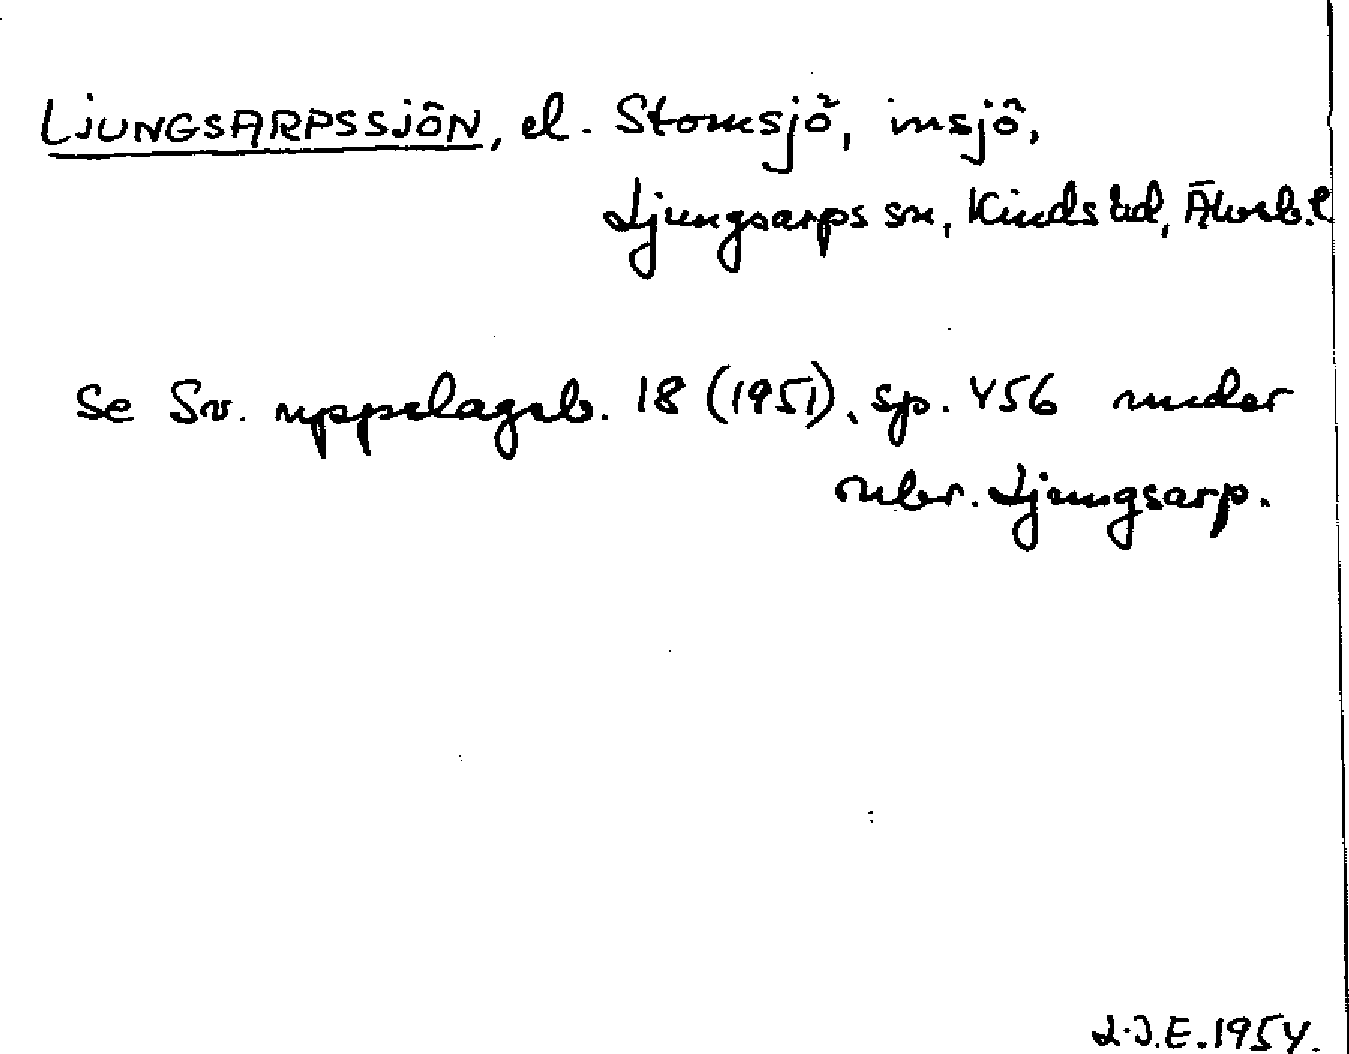 LJUNGSARPSSJÖN, el. Stomsjö, insjö,
Ljungsarps sn, Kinds hd, Älvsb. l
Se Sv. uppslagsb. 18 (1951), sp. 456 under
rubr. Ljungsarp.
L.J.E. 1954.